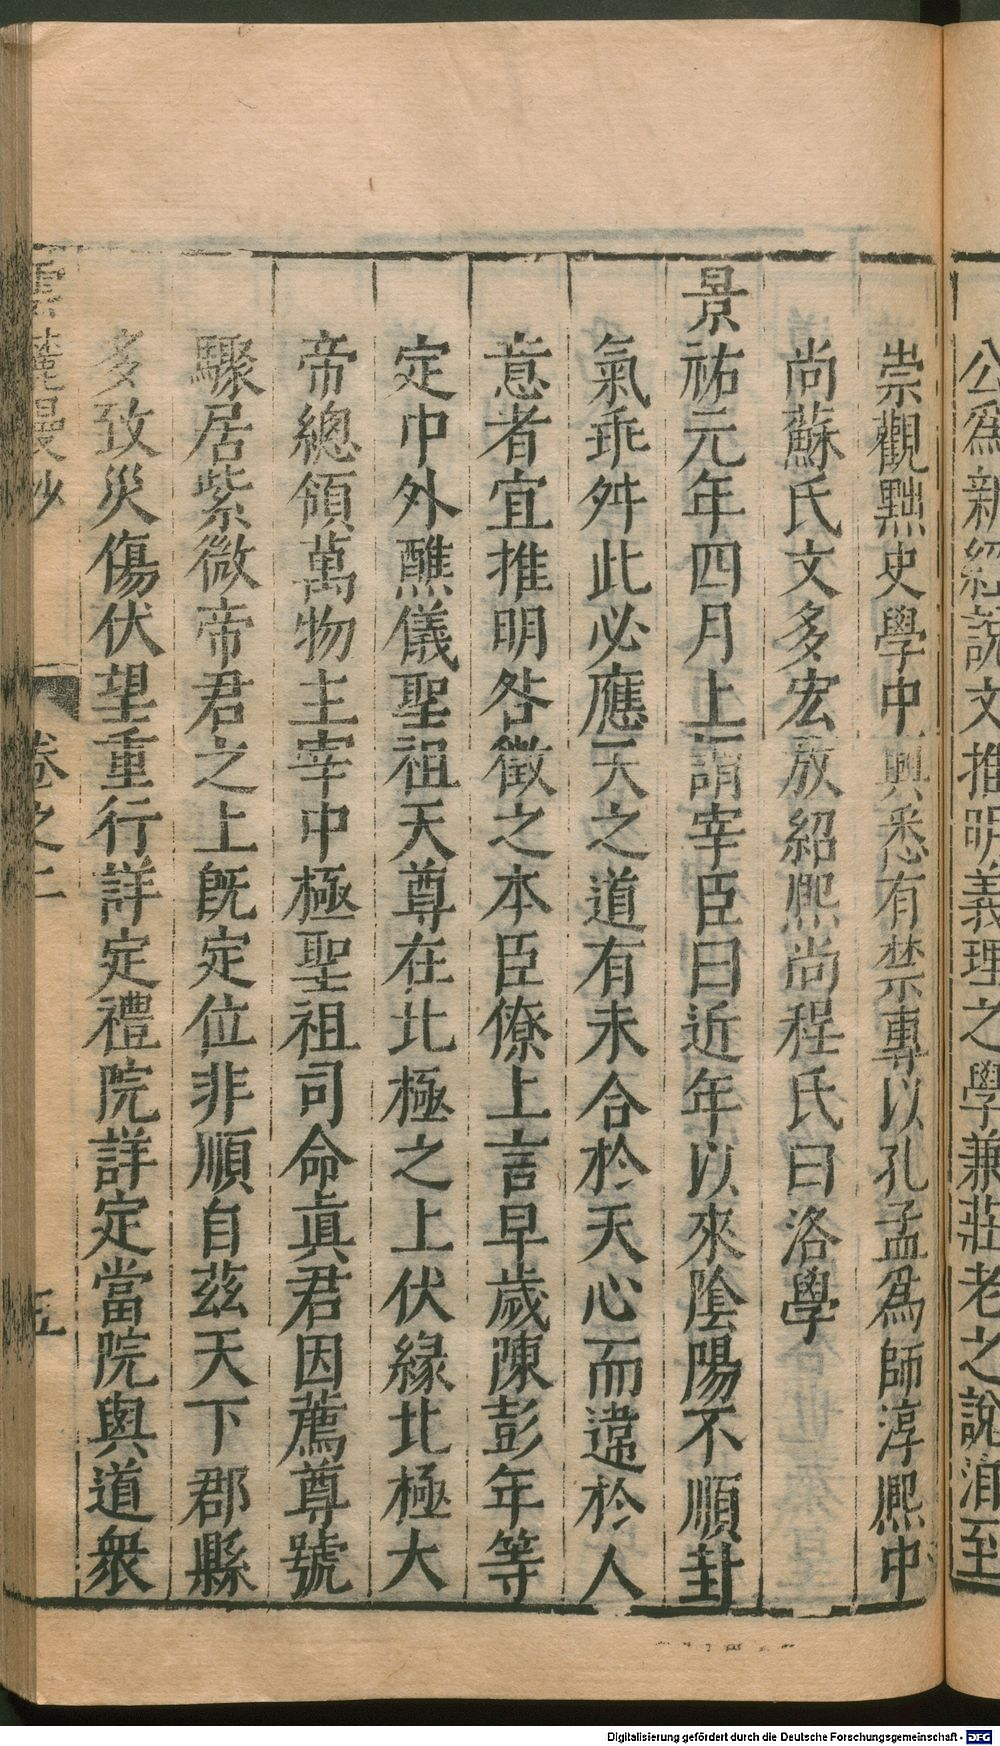 公爲新經說文推明義理之學兼莊老之說洎至
崇觀黜史學中興悉有禁專以孔孟爲師淳熙中
尚蘇氏文多宏放紹熙尚程氏曰洛學
景祐元年四月上謂宰臣曰近年以來陰陽不順封
氣乖舛此必應天之道有未合於天心而違於人
意者宜推明咎徵之本臣僚上言早歲陳彭年等
定中外醮儀聖祖天尊在北極之上伏緣北極大
帝總領萬物主宰中極聖祖司命眞君因薦尊號
驟居紫微帝君之上旣定位非順自茲天下郡縣
多致災傷伏望重行詳定禮院詳定當院與道衆
雲麓漫抄 卷之二 五
Digitalisierung gefördert durch die Deutsche Forschungsgemeinschaft - DFG